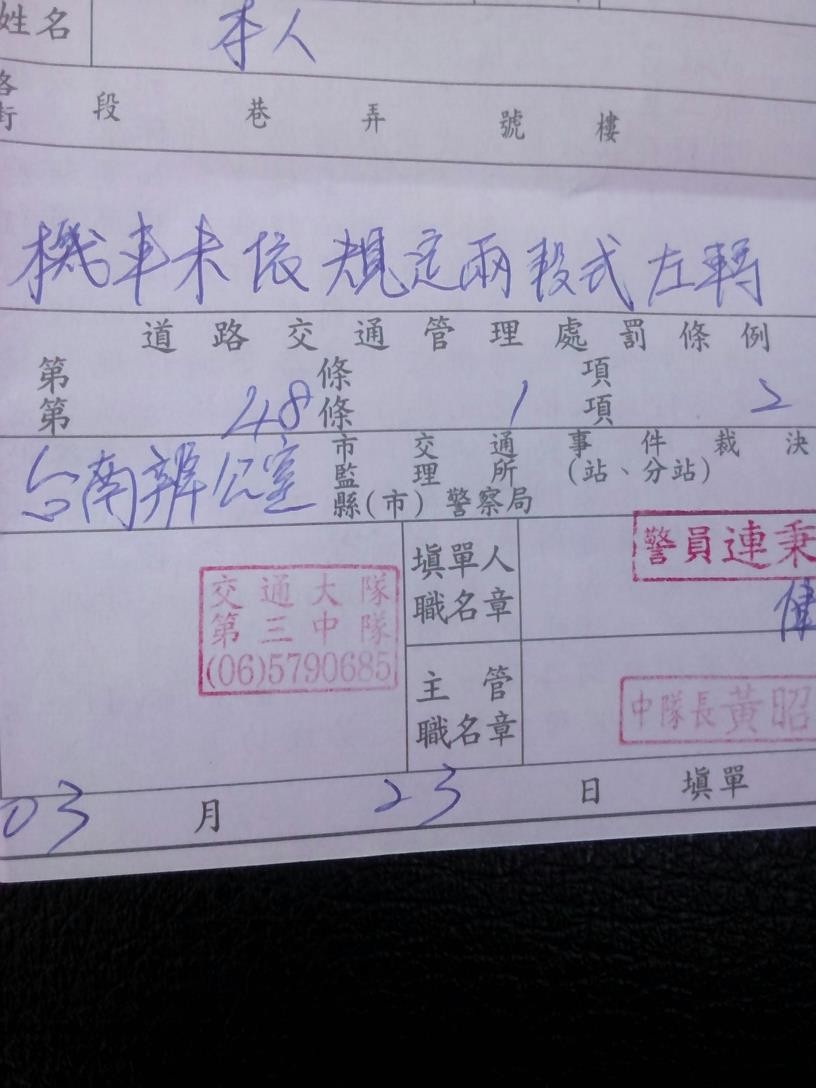 姓名 本人
路
街 段 巷 弄 號 樓
機車未依規定兩段式左轉
道路交通管理處罰條例
第 條 項
第 48 條 1 項 2
台南辦公室
市 交通事件裁決
監理所(站、分站)
縣(市)警察局
交通大隊
第三中隊
(06)5790685
填單人
職名章
警員連秉
偉
主管
職名章
中隊長黃昭
03 月 23 日 填單